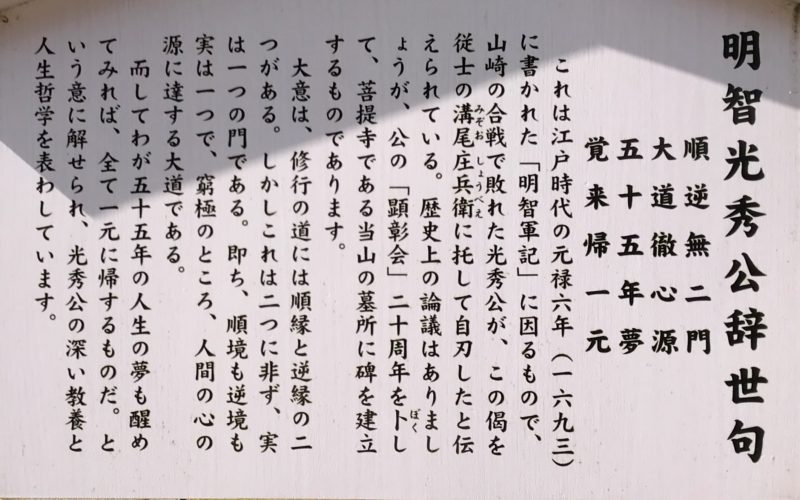 明智光秀公辞世句
順逆無二門
大道徹心源
五十五年夢
覚来帰一元
これは江戸時代の元禄六年（一六九三）
に書かれた「明智軍記」に因るもので、
山崎の合戦で敗れた光秀公が、この偈を
従士の溝尾庄兵衛に托して自刃したと伝
みぞお しょうべえ
えられている。歴史上の論議はありまし
ょうが、公の「顕彰会」二十周年を卜し
ぼく
て、菩提寺である当山の墓所に碑を建立
するものであります。
大意は、修行の道には順縁と逆縁の二
つがある。しかしこれは二つに非ず、実
は一つの門である。即ち、順境も逆境も
実は一つで、窮極のところ、人間の心の
源に達する大道である。
而してわが五十五年の人生の夢も醒め
てみれば、全て一元に帰するものだ。と
いう意に解せられ、光秀公の深い教養と
人生哲学を表わしています。